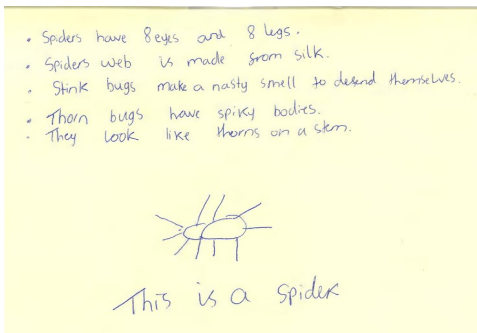 • Spiders have 8 eyes and 8 legs.
• Spiders web is made from silk.
• Stink bugs make a nasty smell to defend themselves.
• Thorn bugs have spiky bodies.
• They look like thorns on a stem.
This is a spider